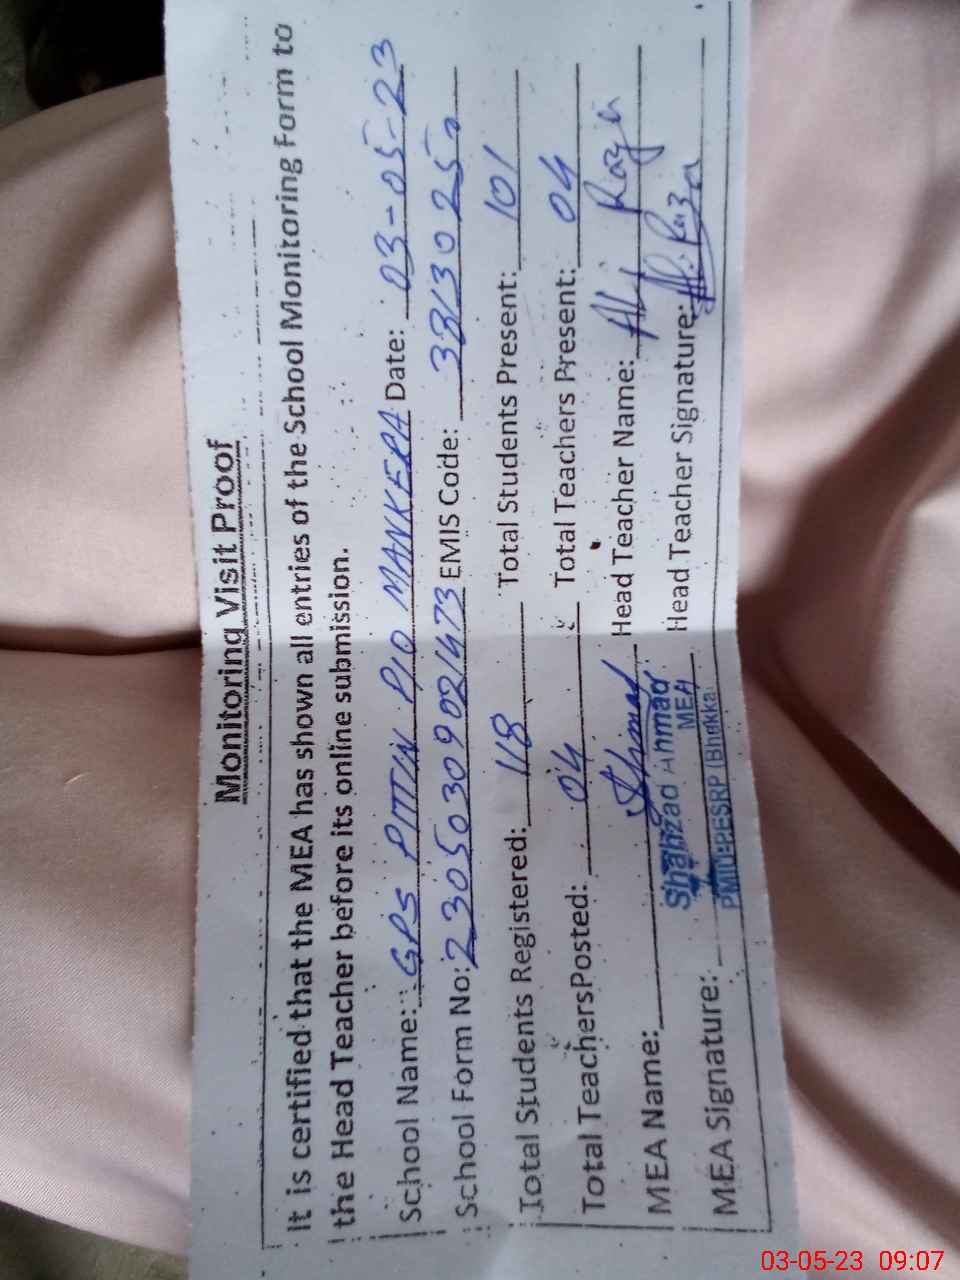 Monitoring Visit Proof
It is certified that the MEA has shown all entries of the School Monitoring Form to
the Head Teacher before its online submission.
School Name: GPS PITTIN P/O MANKERA Date: 03-05-23
School Form No: 23050309021473 EMIS Code: 33130250
Total Students Registered: 118 Total Students Present: 101
Total TeachersPosted: 04 Total Teachers Present: 04
MEA Name: Head Teacher Name: Ali Raza
Shahzad Ahmad
MEA
MEA Signature: Head Teacher Signature: Ali Raza
PMIU-PESRP (Bhakkar
03-05-23 09:07